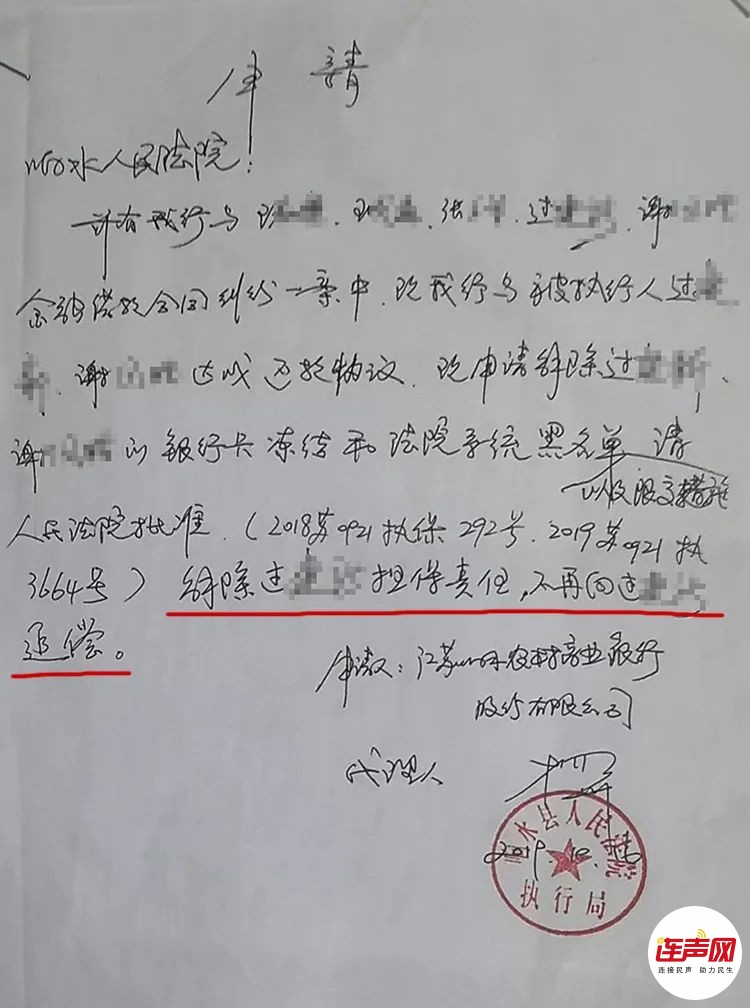 申 請
响水人民法院:
并有我行与 、 、张 、过 、谢
金融借款合同纠纷一案中,现我行与被执行人过
、谢 达成还款协议,现申请解除过 、
谢 的银行卡冻结和法院系统黑名单 请
以及限高措施
人民法院批准。(2018苏0921执保292号、2019苏0921执
3664号)解除过 担保责任,不再向过
追偿。
申请人:江苏响水农村商业银行
股份有限公司
代理人
2019.10.
响水县人民法院
执行局
连声网
连接民声 助力民生